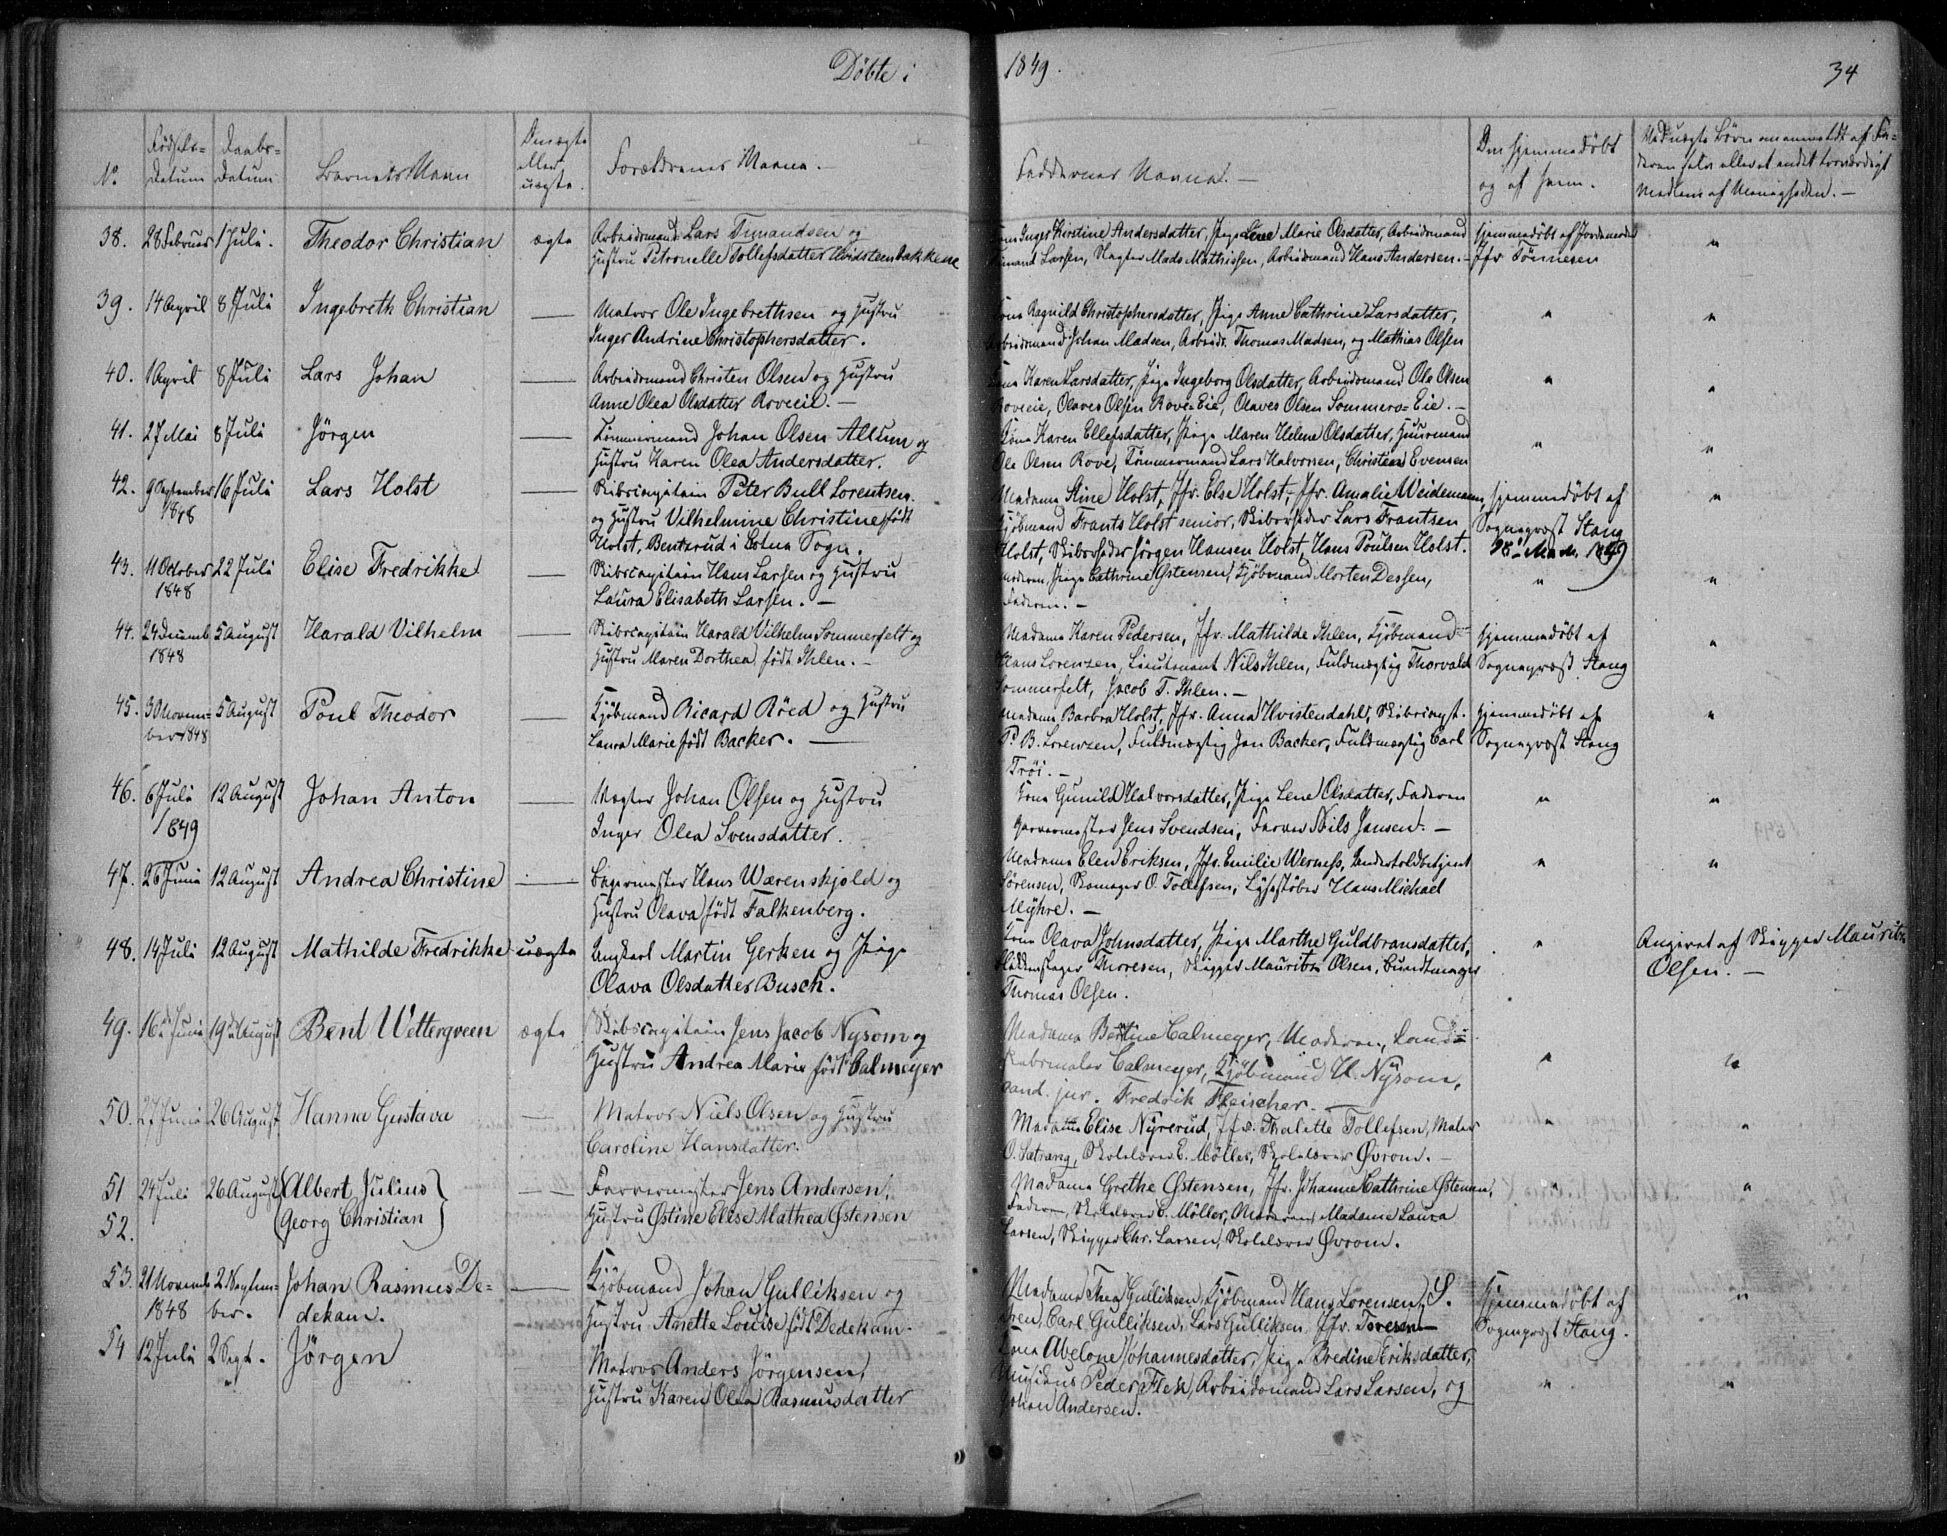 Döbte i 1849. 34
No. Födsels-Datum Daabs-Datum Barnets Navn Om ægte eller uægte. Forældrenes Navne. Faddernes Navne. Om hjemmedöbt og af hvem.
38. 28 Februar 1 Juli. Theodor Christian ægte Arbeidsmand Lars Simandsen og
Hustru Petronelle Tollefsdatter Hvidsteenbakkene
Inger Kirstine Andersdatter, Pige Lene Marie Olsdatter, Arbeidsmand
Larsen, Vægter Mads Mathissen, Arbeidsmand Hans Andersen.
Hjemmedöbt af Jordemoder
Jfr Tönnesen
39. 14 April 8 Juli Ingebreth Christian — Matros Ole Ingebrethsen og Hustru
Inger Andrine Christophersdatter.
Kone Ragnild Christophersdatter, Pige Anne Cathrine Larsdatter,
Arbeidsmand Johan Madsen, Arbeidr. Thomas Madsen, og Mathias Olsen
40. 1 April 8 Juli Lars Johan — Arbeidsmand Christen Olsen og Hustru
Anne Olea Olsdatter Roveeie. —
Kone Karen Larsdatter, Pige Ingeborg Olsdatter, Arbeidsmand Ole Olsen
Roveeie, Olaves Olsen Rove-Eie, Olaves Olsen Sommero-Eie. —
41. 27 Mai 8 Juli Jörgen — Tömmermand Johan Olsen Allum og
Hustru Karen Olea Andersdatter.
Kone Karen Ellefsdatter, Pige Maren Helene Olsdatter, Huusmand
Ole Olsen Rove, Tömmermand Lars Halvorsen, Christen Evensen
42. 9 September 1848 16 Juli Lars Holst — Skibscapitain Peter Bull Lorentsen
og Hustru Vilhelmine Christine född
Holst, Bentsrud i Botne Sogn.
Madame Stine Holst, Jfr. Else Holst, Jfr. Amalie Weidemann,
Kjöbmand Frants Holst senior, Skibsrheder Lars Frantsen
Holst, Skibsrheder Jörgen Hansen Holst, Hans Poulsen Holst.
Hjemmedöbt af
Sognepræst Stang
43. 11 October 1848 22 Juli Elise Fredrikke — Skibscapitain Hans Larsen og Hustru
Laura Elisabeth Larsen. —
Moderen, Pige Cathrine Østensen, Kjöbmand Morten Dessen,
Faderen. —
44. 24 Decemb 1848 5 August Harald Vilhelm — Skibscapitain Harald Vilhelm Sommerfelt og
Hustru Maren Dorthea, födt Ihlen. —
Madame Karen Pedersen, Jfr. Mathilde Ihlen, Kjöbmand
Hans Lorenzen, Lieutenant Nils Ihlen, Fuldmægtig Thorvald
Sommerfelt, Jacob T. Ihlen. —
Hjemmedöbt af
Sognepræst Stang
45. 30 November 1848 5 August Poul Theodor — Kjöbmand Ricard Röed og Hustru
Laura Marie födt Backer. —
Madame Barbra Holst, Jfr. Anna Hvistendahl, Skibscapt.
P. B. Lorenzen, Fuldmægtig Jan Backer, Fuldmægtig Carl
Tröi. —
Hjemmedöbt af
Sognepræst Stang
46. 6 Juli 1849 12 August Johan Anton — Vægter Johan Olsen og Hustru
Inger Olea Svensdatter.
Kone Gunild Halvorsdatter, Pige Lene Olsdatter, Faderen
Garvermester Jens Svendsen, Farver Nils Jansen. —
47. 26 Junie 12 August Andrea Christine — Bagermester Hans Wærenskjold og
Hustru Olava födt Falkenberg.
Madame Elen Eriksen, Jfr. Emilie Werness, Undertoldbetjent
Sörensen, Skomager O. Tollefsen, Lysestöber Hans Michael
Myhre. —
48. 14 Juli 12 August Mathilde Fredrikke uægte Ungkarl Martin Gerken og Pige
Olava Olsdatter Busch.
Kone Olava Johnsdatter, Pige Marthe Guldbransdatter,
Thoresen, Skipper Mauritz Olsen, Bundtmager
Thomas Olsen.
Angivet af Skipper Mauritz
Olsen. —
49. 16de Junie 19de August Bent Wettergreen ægte Skibscapitain Jens Jacob Nysom og
Hustru Andrea Marie födt Calmeyer
Madame Bertine Calmeyer, Moderen, Landskabsmaler Calmeyer, Kjöbmand H. Nysom,
cand. jur. Fredrik Fleischer. —
50. 27 Junie 26 August Hanna Gustava — Matros Niels Olsen og Hustru
Caroline Hansdatter.
Madame Elise Nyrerud, Jfr. Thalette Tollefsen, Maler
O. Satrang, Skolelærer E. Möller, Skolelærer Øvrom. —
51 52. 24 Juli 26 August Albert Julius
Georg Christian — Farvermester Jens Andersen,
Hustru Østine Elise Mathea Østensen
Madame Grethe Østensen, Jfr. Johanne Cathrine Østensen,
Faderen, Skolelærer E. Möller, Moderen, Madame Laura
Larsen, Skipper Chr. Larsen, Skolelærer Øvrom.
53. 21 Novemb 1848 2 September. Johan Rasmus Dedekam. — Kjöbmand Johan Gulliksen og
Hustru Anette Louise födt Dedekam.
Madame Thea Gulliksen, Kjöbmand Hans Lorensen, S.
Carl Gulliksen, Lars Gulliksen, Jfr. Toresen
Hjemmedöbt af
Sognepræst Stang.
54 12 Juli 2 Sept. Jörgen — Matros Anders Jörgensen,
Hustru Karen Olea Rasmusdatter
Kone Abelone Johannesdatter, Pige Bredine Eriksdatter,
Musikus Peder Flek, Arbeidsmand Lars Larsen, og
Johan Andersen.